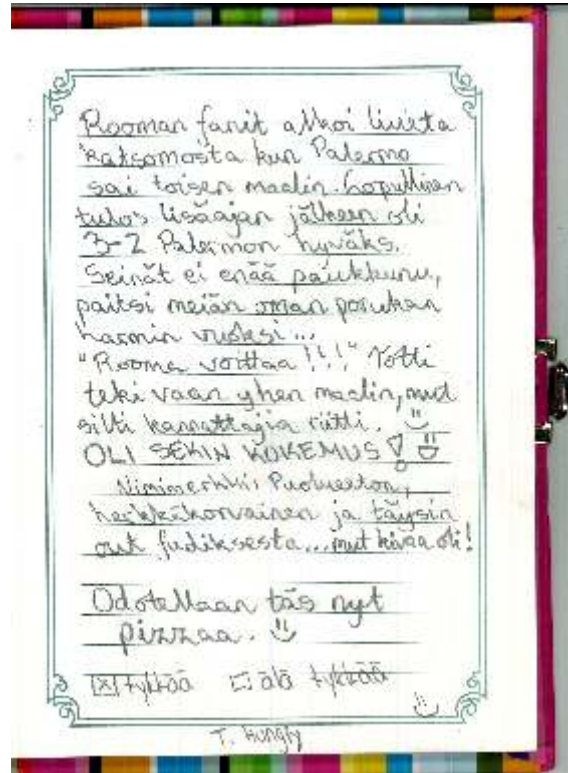 Rooman fanit alkoi liueta
katsomosta kun Palermo
sai toisen maalin. Lopullinen
tulos lisäajan jälkeen oli
3-2 Palermon hyväks.
Seinät ei enää paukkunu,
paitsi meiän oman porukan
harmin vuoksi...
"Rooma voittaa!!!" Totti
teki vaan yhen maalin, mut
silti kannattajia riitti.
OLI SEKIN KOKEMUS!
Nimimerkki: Puolueeton,
herkkäkorvainen ja täysin
out fudiksesta...mut kivaa oli!
Odotellaan täs nyt
pizzaa.
tykkää älä tykkää
T. hungry